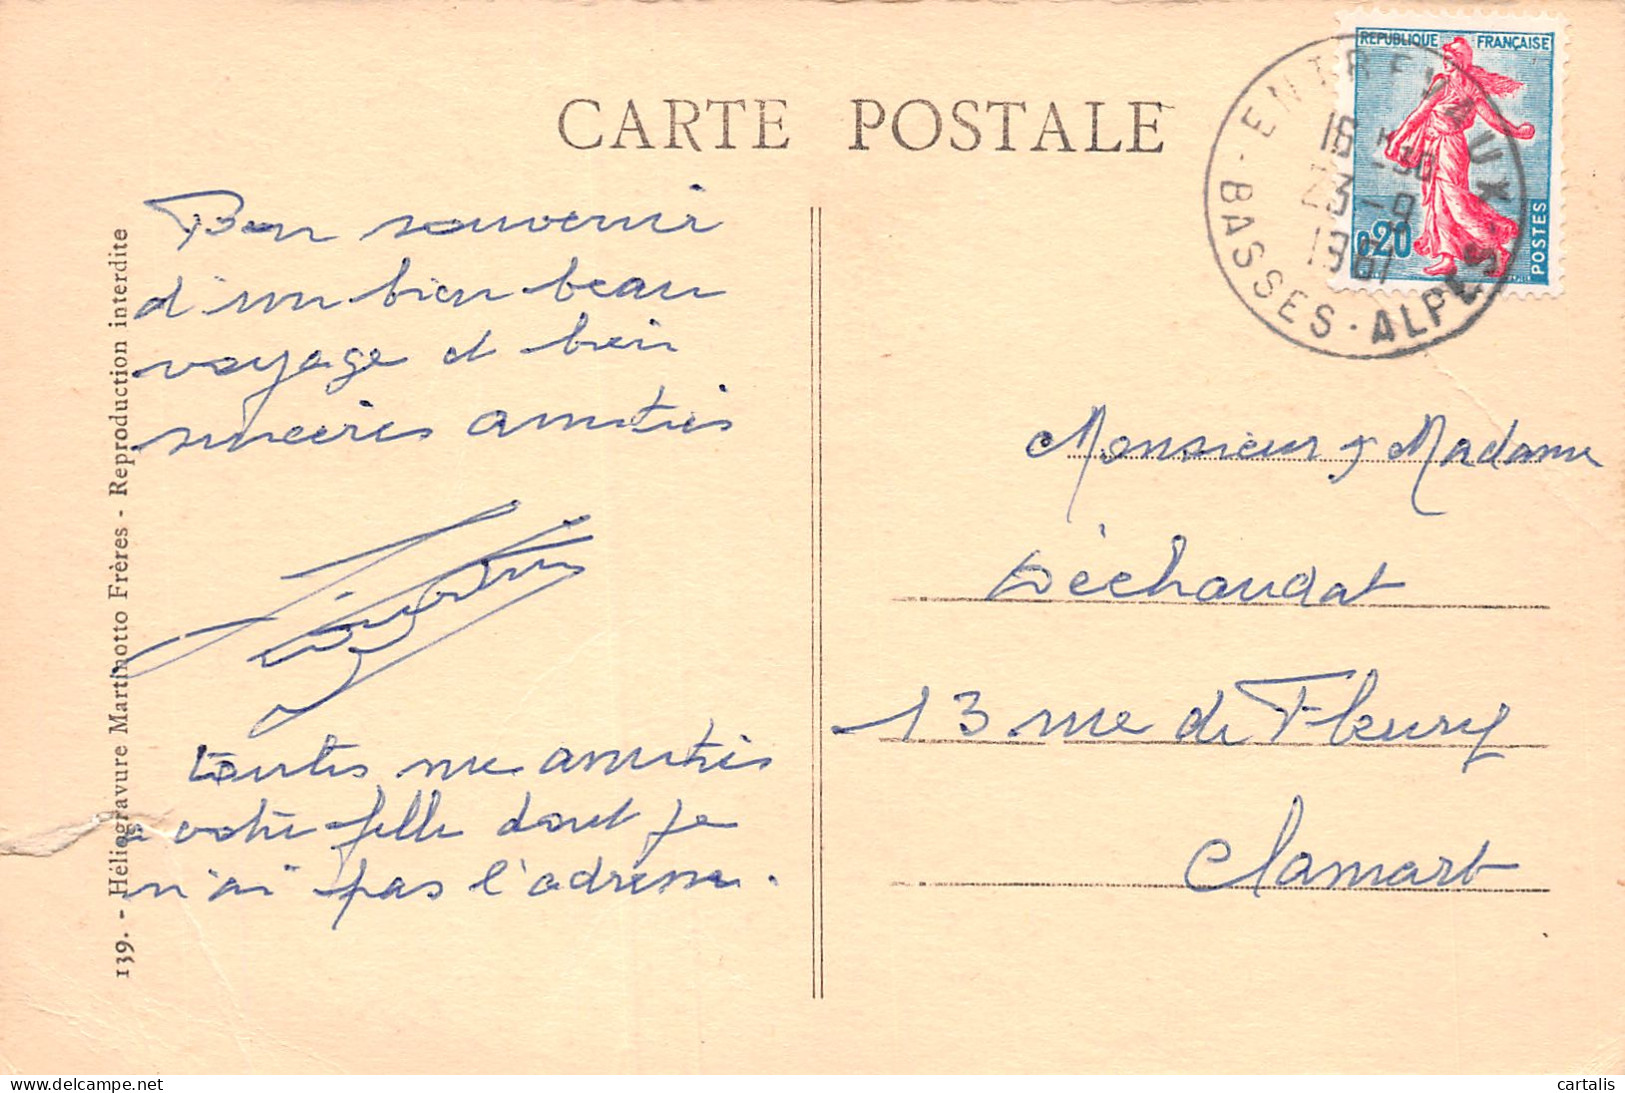 CARTE POSTALE
REPUBLIQUE FRANÇAISE
0,20
POSTES
ENTREVAUX
16 H 30
23-9
1961
BASSES-ALPES
Bon souvenir
d'un bien beau
voyage et bien
sincères amitiés
toutes me amitiés
à votre fille dont je
n'ai pas l'adresse.
Monsieur & Madame
Déchaudat
13 rue de Fleury
Clamart
139. - Héliogravure Martinotto Frères - Reproduction interdite
delcampe.net
cartalis